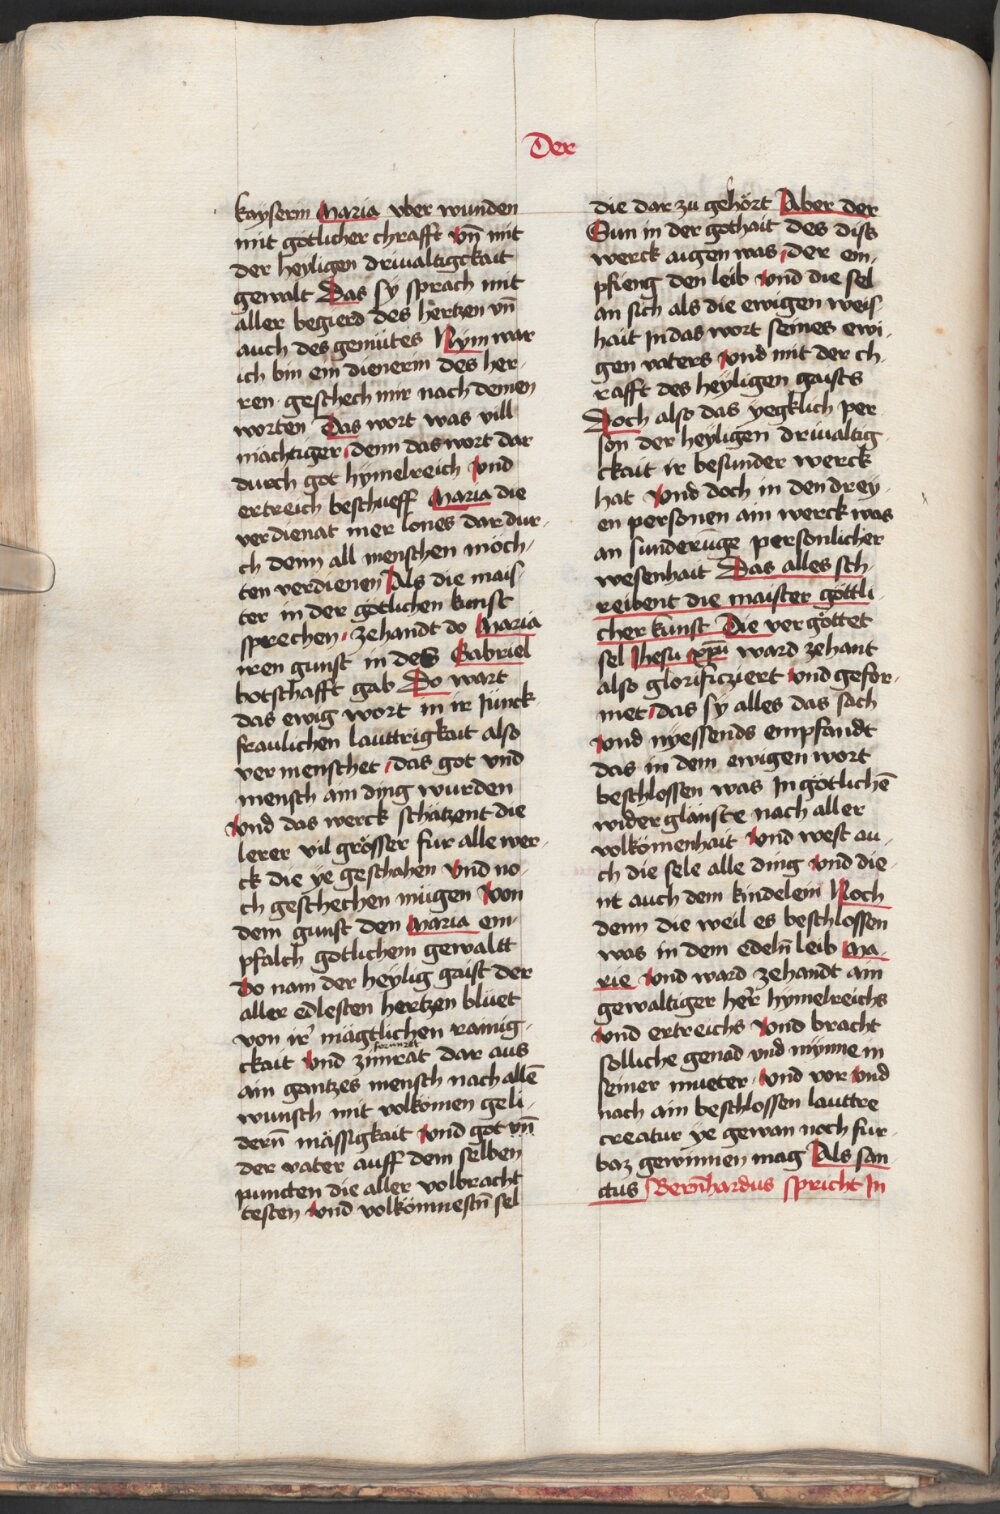 Der
kayserin Maria vber wunden
mit götlicher chrafft vn̄ mit
der heyligen driualtigckait
gewalt Das sy sprach mit
aller begierd des hertzen vn̄
auch des gemütes Nym war
ich bin ein dienerin des her-
ren · geschech mir nach deinen
worten Das wort was vill
mächtiger denn das wort dar
durch got hymelreich vnd
ertreich beschueff Maria die
verdienat mer lones dar dur-
ch denn all menschen möch-
ten verdienen Als die mais-
ter in der götlichen kunst
sprechen · zehandt do Maria
iren gunst in des Gabriel
botschafft gab Do wart
das ewig wort in ir Junck
fraulichen lauttrigkait also
vermenschet das got vnd
mensch ain ding wurden
Vnd das werck schätzent die
lerer vil grösser für alle wer-
ck die ye geschahen Vnd no-
ch geschechen mügen Von
dem gunst den Maria em-
pfalch gotlichem gewaltt
Do nam der heylig gaist der
aller edlesten hertzen blüet
von ir mägtlichen rainig-
ckait Vnd zimrät dar aus
ain gantzes mensch nach allē
wunsch mit volkomen geli-
dern̄ mässigkait Vnd got vn̄
der vater auff dem selben
puncten die aller volbracht
testen Vnd volkömnestn̄ sel
die dar zu gehört Aber der
Sun in der gothait des diss
werck aigen was der em-
pfieng den leib Vnd die sel
an sich als die ewigen weis
hait In das wort seines ewi-
gen vaters Vnd mit der ch-
rafft des heyligen gaists
Doch also das yegklich per
son der heyligen driualtig
ckait ir besunder werck
hat Vnd doch in den drey-
en personen ain werck was
an sunderūge personlicher
wesenhait Das alles sch-
reibent die maister göttli-
cher kunst Die vergöttet
sel Jhesu xp̄ū ward zehant
also glorificziert Vnd gefor-
met das sy alles das sach
Vnd nyessends empfandt
das in dem ewigen wort
beschlossen was In götlichē
widerglänste nach aller
volkōmenhait Vnd west au-
ch die sele alle ding Vnd die-
nt auch dem kindelein Noch
denn die weil es beschlossen
was in dem edeln̄ leib Ma-
rie Vnd ward zehandt ain
gewaltiger herr hymelreichs
Vnd ertreichs Vnd bracht
solliche genad vnd mynne in
seiner mueter · Vnd vor Vnd
nach ain beschlossen lauttre
creatur ye gewan noch fur-
baz gewinnen mag Als san-
ctus Bern̄hardus spricht In